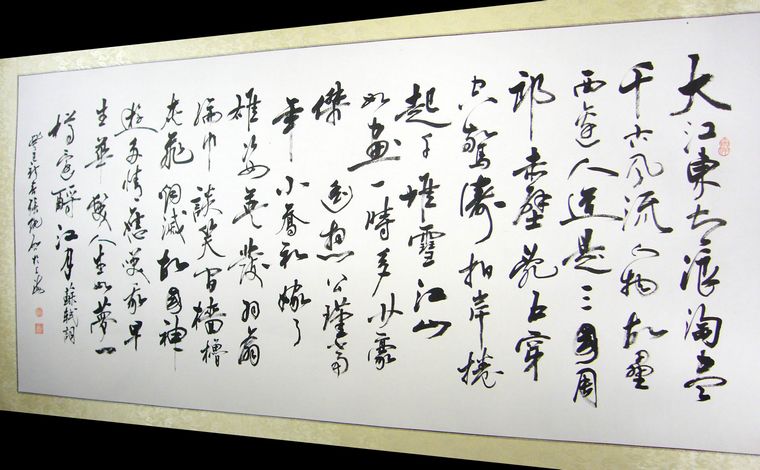 大江東去浪淘盡
千古风流人物故壘
西邊人道是三國周
郎赤壁亂石穿
空驚濤拍岸捲
起千堆雪江山
如畫一時多少豪
傑 遥想公瑾當
年小喬初嫁了
雄姿英發羽扇
綸巾談笑間檣櫓
灰飛烟滅故國神
遊多情應笑我早
生華髮人生如夢一
樽還酹江月 蘇軾詞
癸巳新春